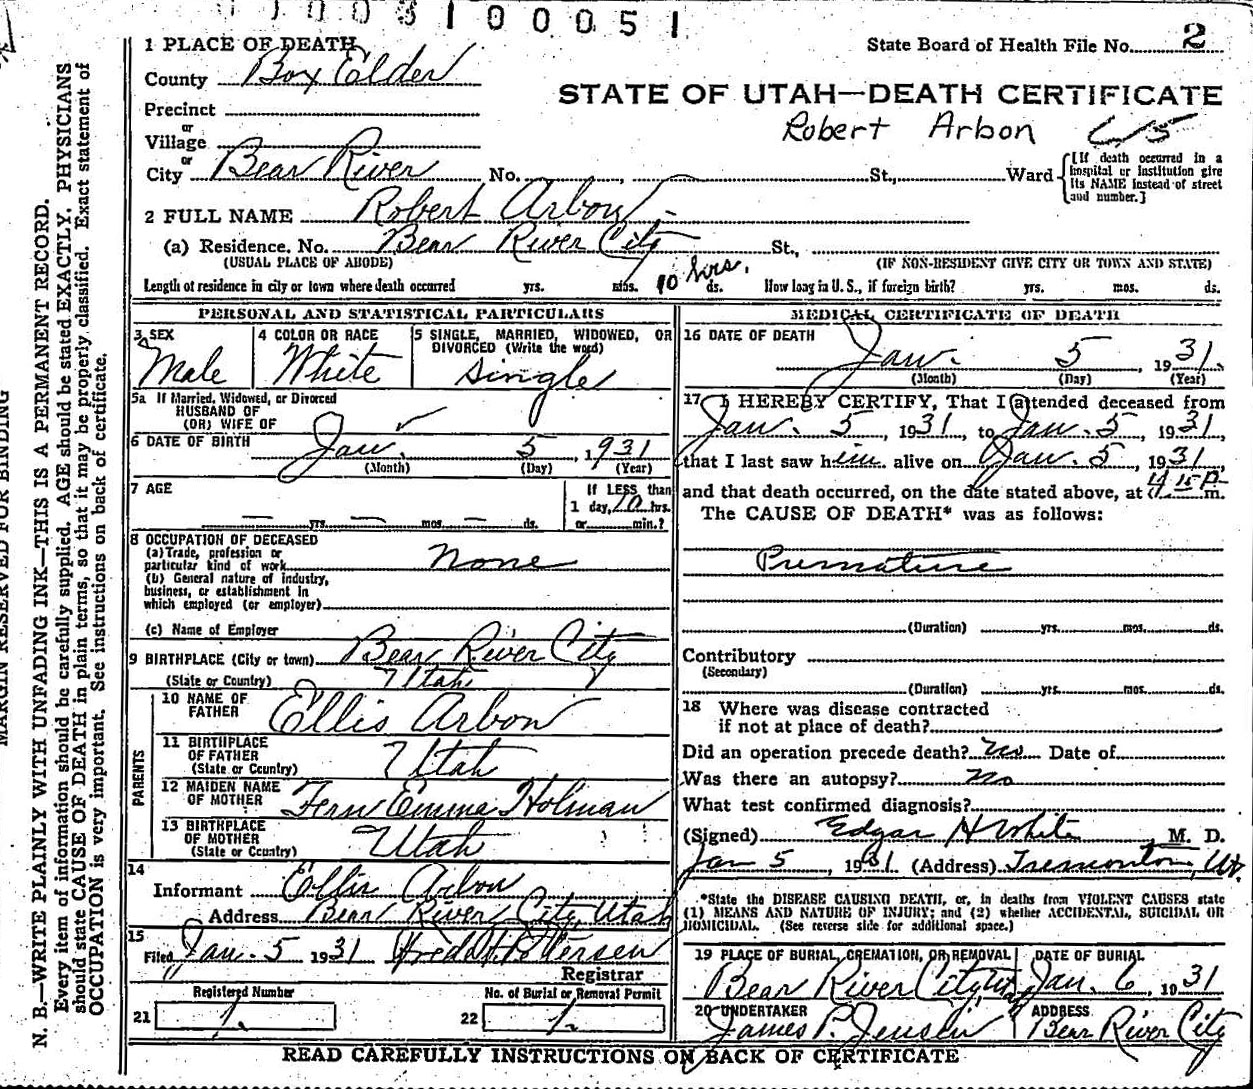 1 0 0 3 1 0 0 0 5 1
State Board of Health File No. 2
STATE OF UTAH—DEATH CERTIFICATE
Robert Arbon
1 PLACE OF DEATH
County Box Elder
Precinct
or
Village
or
City Bear River No. , St., Ward
[If death occurred in a hospital or institution give its NAME instead of street and number.]
2 FULL NAME Robert Arbon
(a) Residence. No. Bear River City St.,
(USUAL PLACE OF ABODE) (IF NON-RESIDENT GIVE CITY OR TOWN AND STATE)
Length of residence in city or town where death occurred yrs. mos. 10 hrs. ds. How long in U. S., if foreign birth? yrs. mos. ds.
PERSONAL AND STATISTICAL PARTICULARS
3 SEX
Male
4 COLOR OR RACE
White
5 SINGLE, MARRIED, WIDOWED, OR DIVORCED (Write the word)
single
5a If Married, Widowed, or Divorced
HUSBAND OF
(OR) WIFE OF
6 DATE OF BIRTH Jan. 5, 1931
(Month) (Day) (Year)
7 AGE
yrs. mos. ds.
If LESS than
1 day, 10 hrs.
or min.?
8 OCCUPATION OF DECEASED
(a) Trade, profession or
particular kind of work None
(b) General nature of industry,
business, or establishment in
which employed (or employer)
(c) Name of Employer
9 BIRTHPLACE (City or town) Bear River City
(State or Country) Utah
PARENTS
10 NAME OF
FATHER Ellis Arbon
11 BIRTHPLACE
OF FATHER
(State or Country) Utah
12 MAIDEN NAME
OF MOTHER Fern Emma Holman
13 BIRTHPLACE
OF MOTHER
(State or Country) Utah
14
Informant Ellis Arbon
Address Bear River City, Utah
15
Filed Jan. 5 1931 Pettersen
Registrar
Registered Number
21 1.
No. of Burial or Removal Permit
22 1.
MEDICAL CERTIFICATE OF DEATH
16 DATE OF DEATH
Jan. 5 1931.
(Month) (Day) (Year)
17 I HEREBY CERTIFY, That I attended deceased from
Jan. 5, 1931, to Jan. 5, 1931,
that I last saw him alive on Jan. 5, 1931,
and that death occurred, on the date stated above, at 4 15 P. m.
The CAUSE OF DEATH* was as follows:
Premature
(Duration) yrs. mos. ds.
Contributory
(Secondary)
(Duration) yrs. mos. ds.
18 Where was disease contracted
if not at place of death?
Did an operation precede death? No Date of
Was there an autopsy? No
What test confirmed diagnosis?
(Signed) Edgar H White M. D.
Jan 5 1931. (Address) Tremonton, Ut.
*State the DISEASE CAUSING DEATH, or, in deaths from VIOLENT CAUSES state
(1) MEANS AND NATURE OF INJURY; and (2) whether ACCIDENTAL, SUICIDAL OR
HOMICIDAL. (See reverse side for additional space.)
19 PLACE OF BURIAL, CREMATION, OR REMOVAL
Bear River City, Utah
DATE OF BURIAL
Jan. 6, 1931
20 UNDERTAKER
James P. Jensen
ADDRESS
Bear River City
READ CAREFULLY INSTRUCTIONS ON BACK OF CERTIFICATE
MARGIN RESERVED FOR BINDING
N. B.—WRITE PLAINLY WITH UNFADING INK—THIS IS A PERMANENT RECORD.
Every item of information should be carefully supplied. AGE should be stated EXACTLY. PHYSICIANS
should state CAUSE OF DEATH in plain terms, so that it may be properly classified. Exact statement of
OCCUPATION is very important. See instructions on back of certificate.